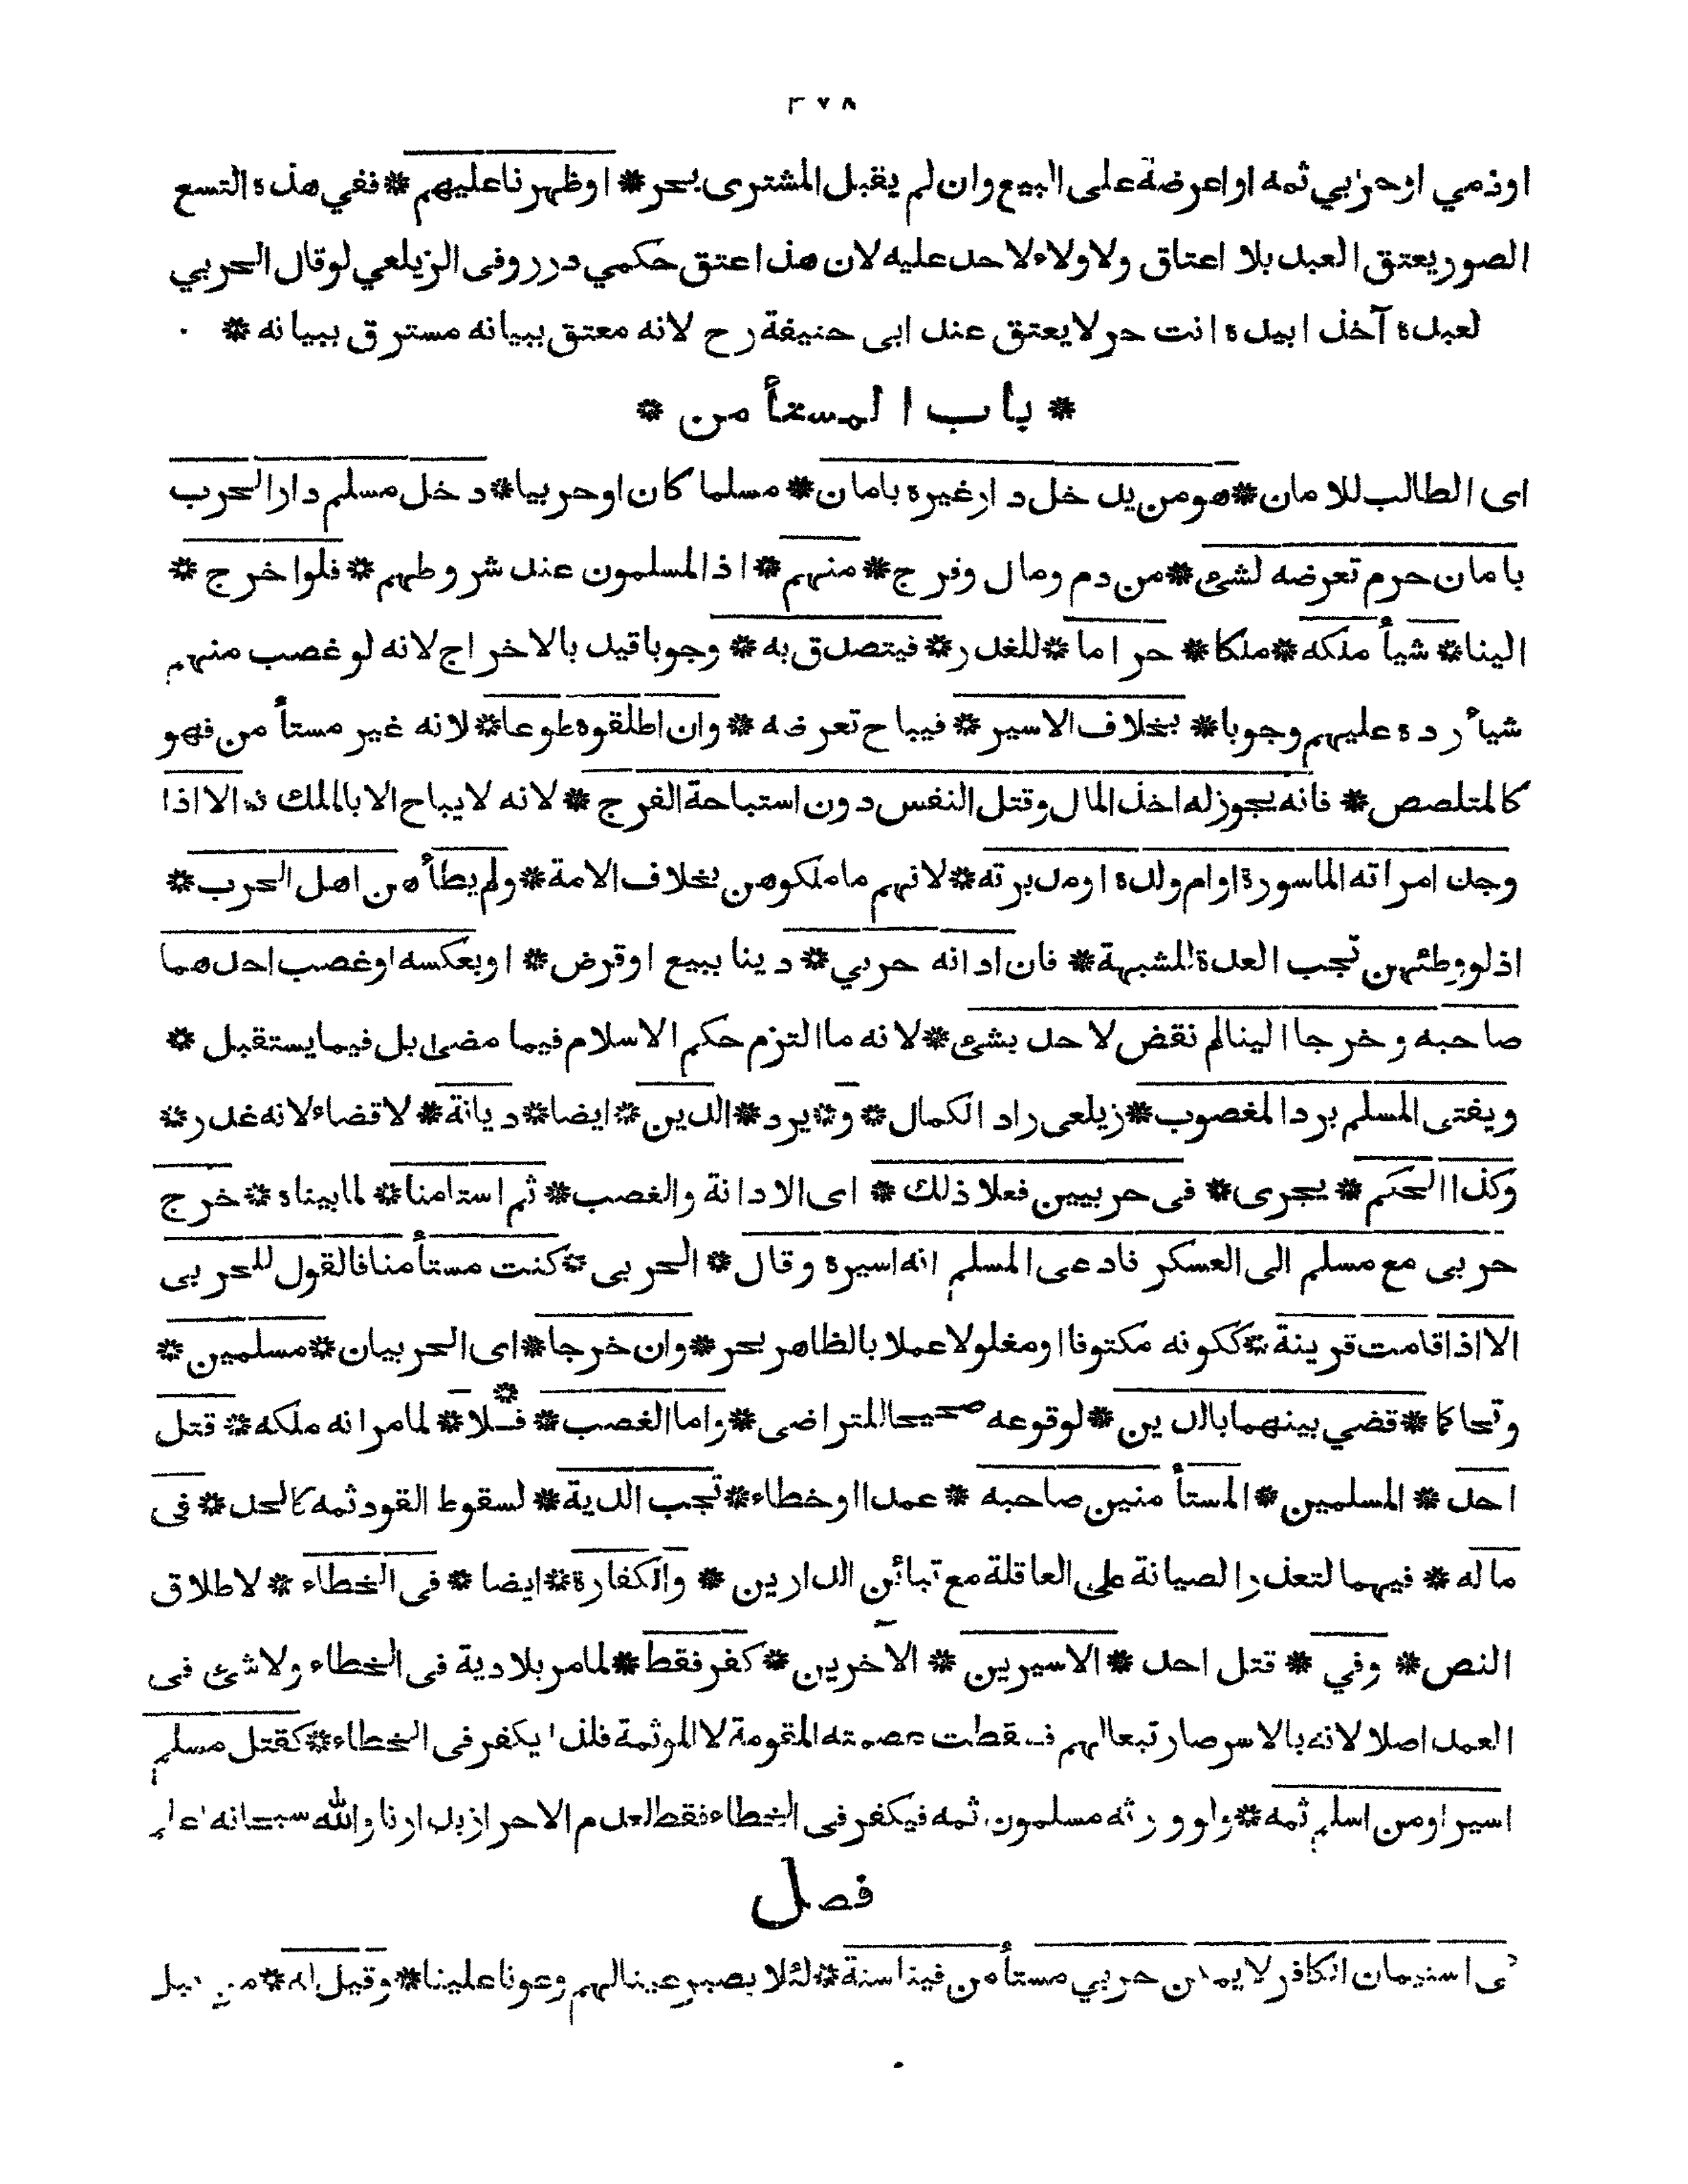 ٣٧٨
اوذمي اوحربي ثمه او اعرضة على البيع وان لم يقبل المشترى بحر * اوظهرنا عليهم * ففي هذه التسع
الصور يعتق العبد بلا اعتاق ولا ولاء لاحد عليه لان هذا عتق حكمي درر وفى الزيلعي لو قال الحربي
لعبده آخذا بيده انت حر لا يعتق عند ابى حنيفة رح لانه معتق ببيانه مسترق ببيانه *
* باب المستأمن *
اى الطالب للامان * هو من يدخل دار غيره بامان * مسلما كان اوحربيا * دخل مسلم دار الحرب
بامان حرم تعرضه لشئ * من دم ومال وفرج * منهم * اذ المسلمون عند شروطهم * فلو اخرج *
الينا * شيأ ملكه * ملكا * حراما * للغدر * فيتصدق به * وجوبا قيد بالاخراج لانه لو غصب منهم
شيأ رده عليهم وجوبا * بخلاف الاسير * فيباح تعرضه * وان اطلقوه طوعا * لانه غير مستأمن فهو
كالمتلصص * فانه يجوز له اخذ المال وقتل النفس دون استباحة الفرج * لانه لا يباح الا بالملك * الا اذا
وجد امراته الماسورة او ام ولده او مدبرته * لانهم ما ملكوهن بخلاف الامة * ولم يطأهن اهل الحرب *
اذ لو وطئهن تجب العدة للشبهة * فان ادانه حربي * دينا ببيع او قرض * او بعكسه او غصب احدهما
صاحبه وخرجا الينا لم نقض لاحد بشئ * لانه ما التزم حكم الاسلام فيما مضى بل فيما يستقبل *
ويفتى المسلم برد المغصوب * زيلعى زاد الكمال * و * يرد * الدين * ايضا * ديانة * لا قضاء لانه غدر *
وكذا الحكم * يجرى * فى حربيين فعلا ذلك * اى الادانة والغصب * ثم استامنا * لما بيناه * خرج
حربى مع مسلم الى العسكر فادعى المسلم انه اسيره وقال * الحربى * كنت مستأمنا فالقول للحربى
الا اذا قامت قرينة * ككونه مكتوفا او مغلولا عملا بالظاهر بحر * وان خرجا * اى الحربيان * مسلمين *
وتحاكما * قضي بينهما بالدين * لوقوعه صحيحا للتراضى * واما الغصب * فلا * لما مر انه ملكه * قتل
احد * المسلمين * المستأمنين صاحبه * عمدا او خطاء * تجب الدية * لسقوط القود ثمه كالحد * فى
ماله * فيهما لتعذر الصيانة على العاقلة مع تبائن الدارين * والكفارة * ايضا * فى الخطاء * لاطلاق
النص * وفي * قتل احد * الاسيرين * الآخرين * كفر فقط * لما مر بلا دية فى الخطاء ولا شئ فى
العمد اصلا لانه بالاسر صار تبعا لهم فسقطت عصمته المقومة لا الموثمة فلذا يكفر فى الخطاء * كقتل مسلم
اسيرا ومن اسلم ثمه * ولو ورثه مسلمون ثمه فيكفر فى الخطاء فقط لعدم الاحراز بدارنا والله سبحانه اعلم
فصل
فى استيمان الكافر لا يمكن حربي مستأمن فينا سنة * لئلا يصير عينا لهم وعونا علينا * وقيل له * من قبل